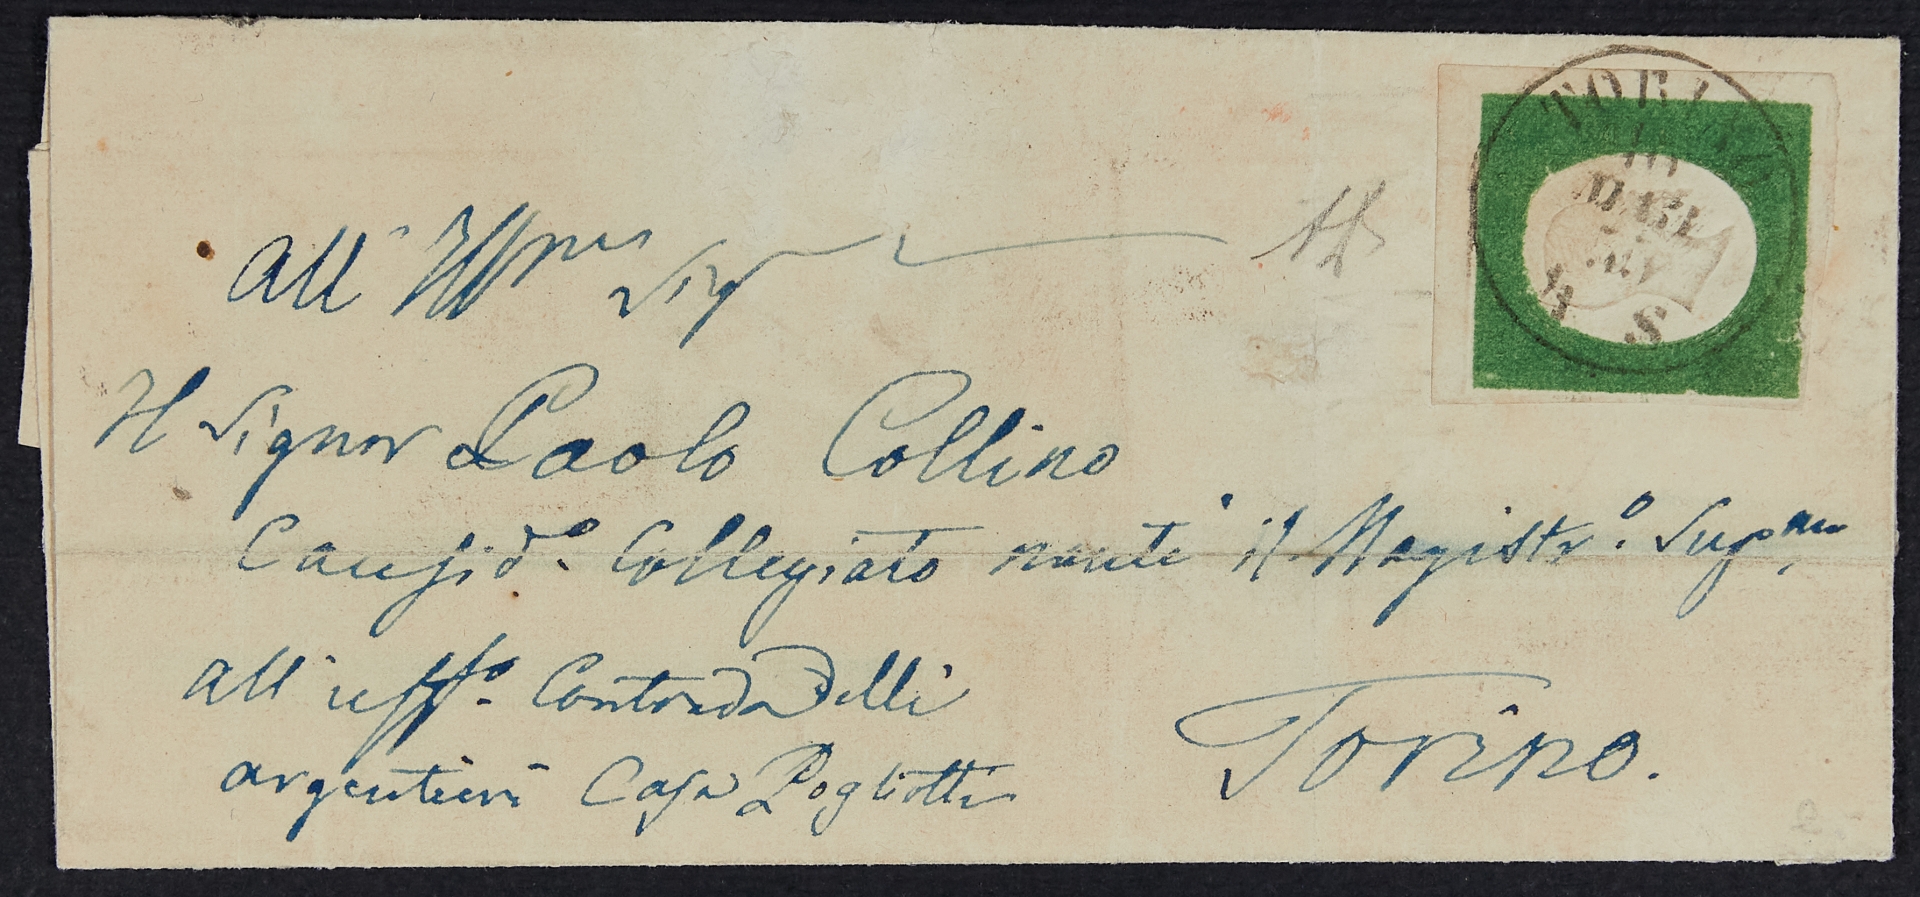 All' Ill.mo Sig
TORINO
10
S
Il Signor Paolo Collino
Causid.o Collegiato nante il Magistr.o Sup.mo
all' uff.o Contrada Delli
argentieri Casa Pogliotti
Torino.